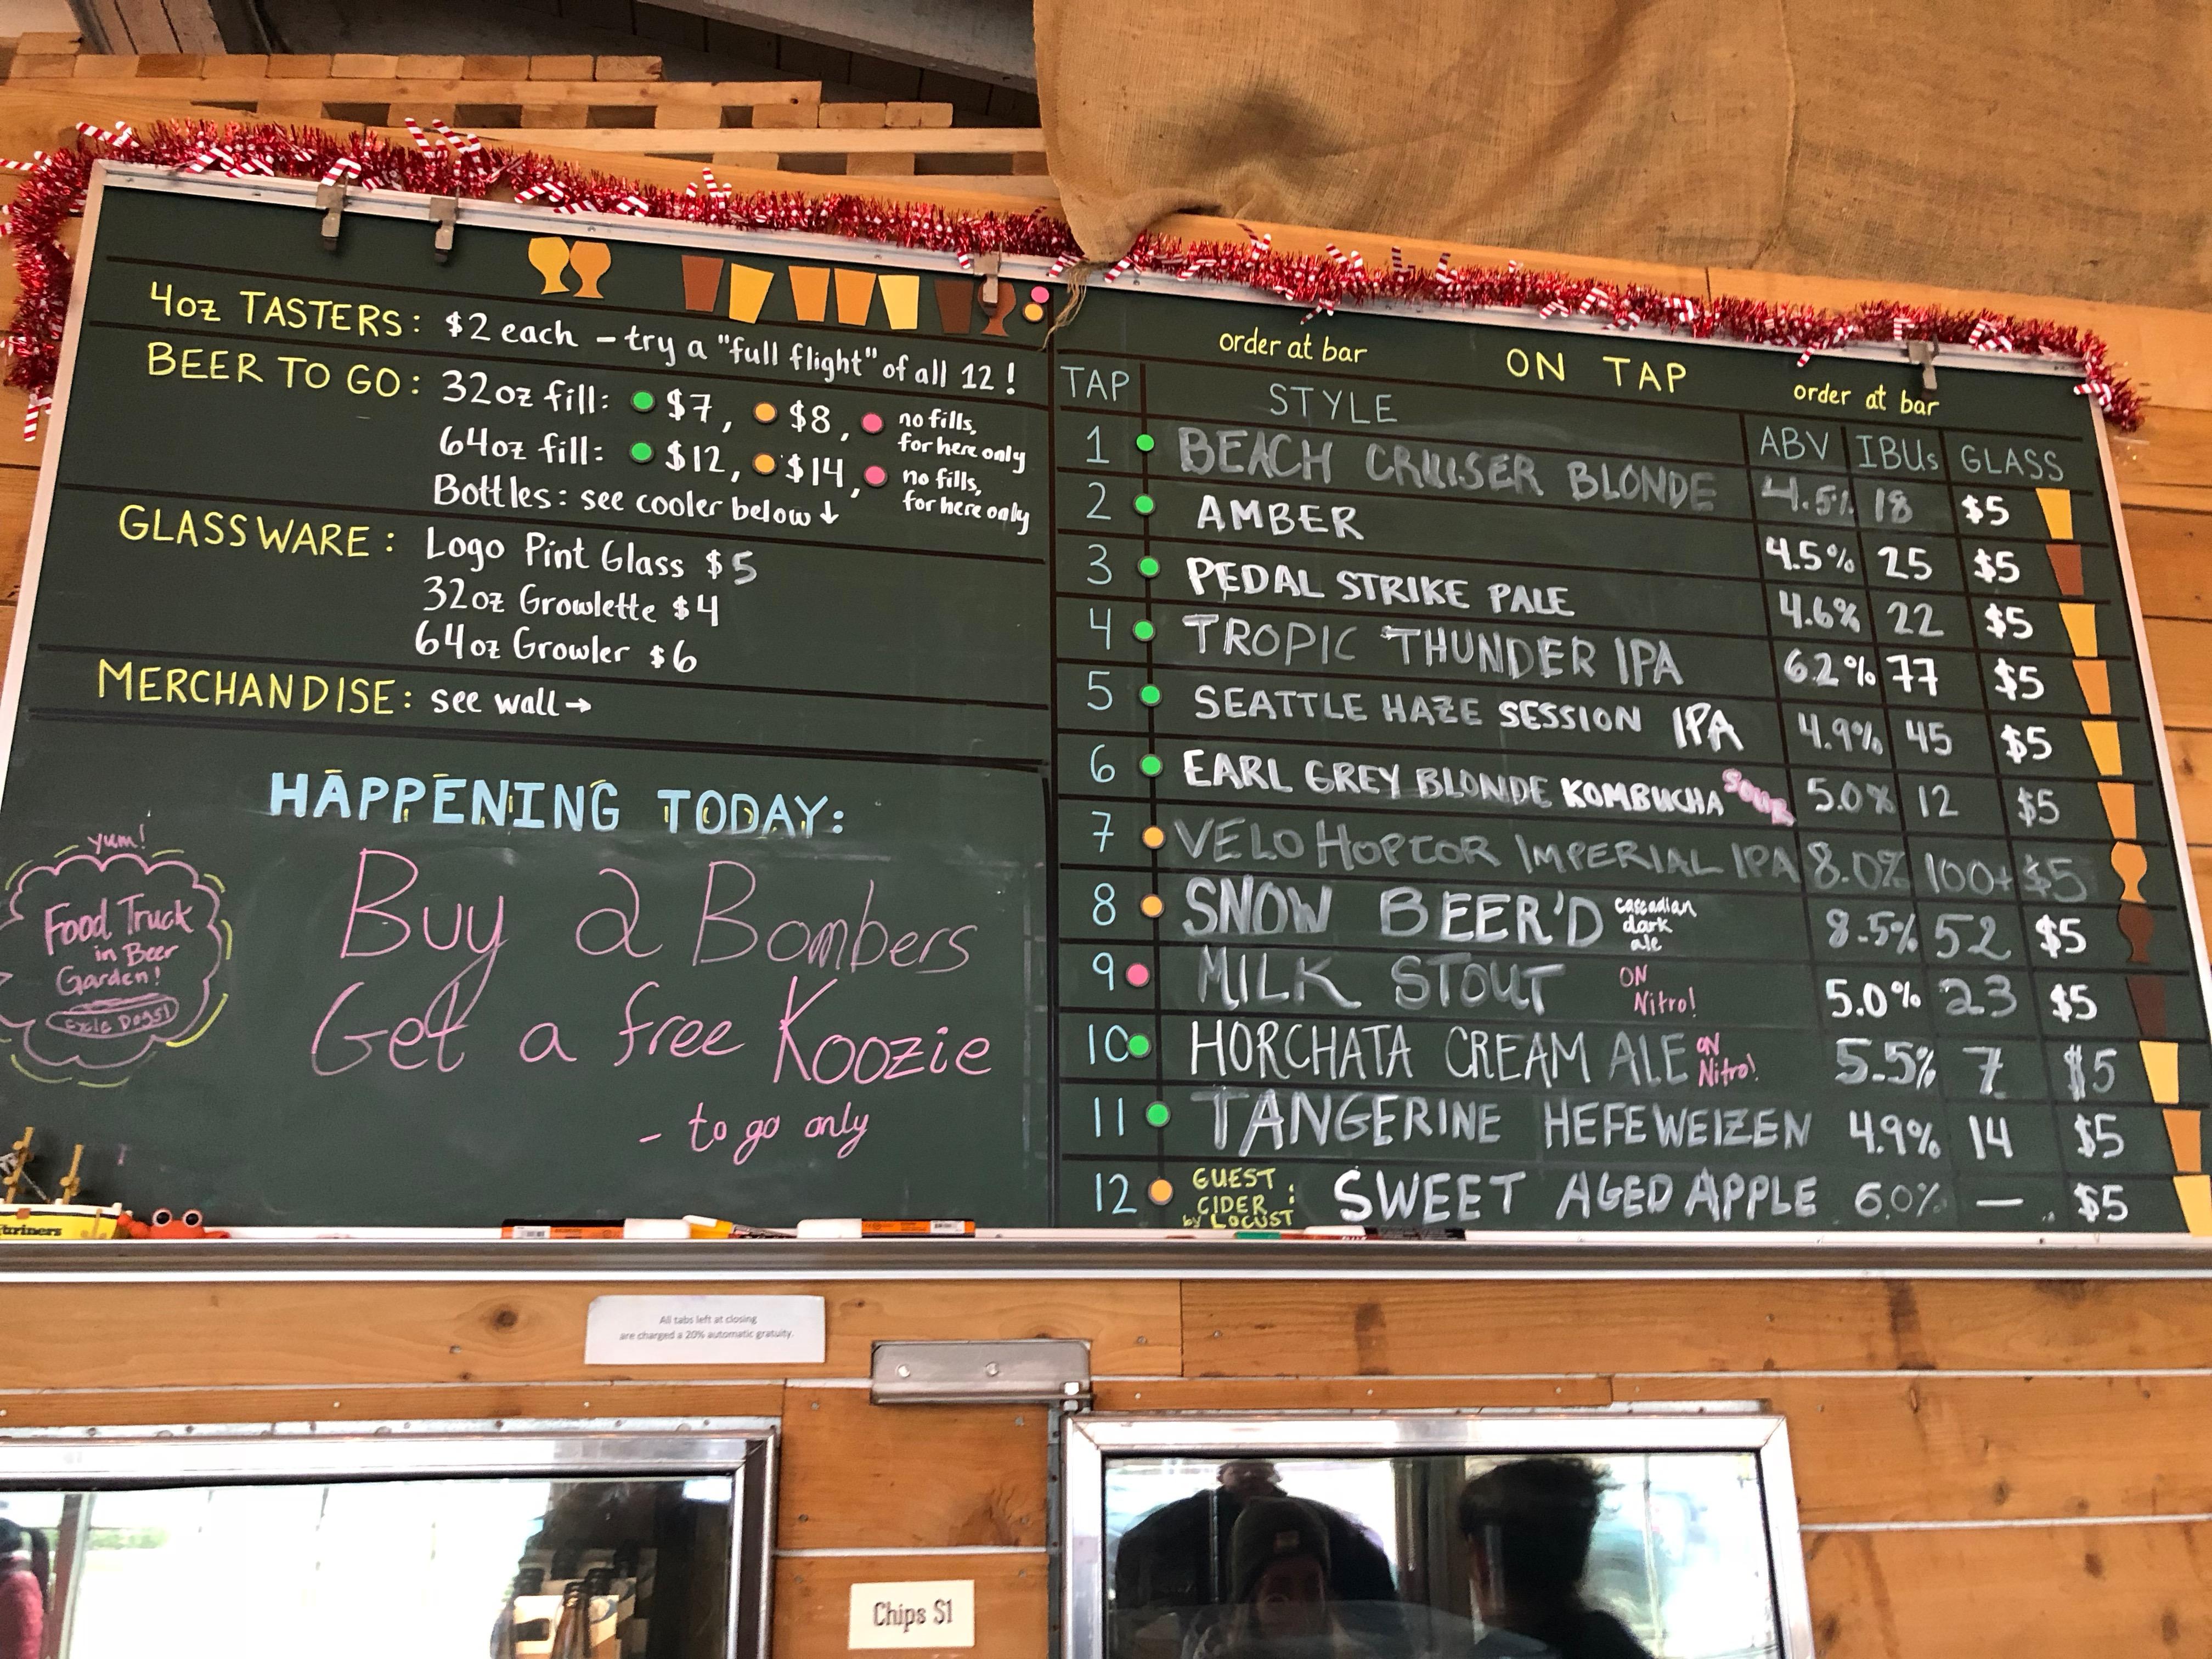 4oz TASTERS: $2 each - try a "full flight" of all 12!
BEER TO GO: 32oz fill: $7, $8, no fills, for here only
64oz fill: $12, $14, no fills, for here only
Bottles: see cooler below ↓
GLASSWARE: Logo Pint Glass $5
32oz Growlette $4
64oz Growler $6
MERCHANDISE: see wall →
HAPPENING TODAY:
Buy 2 Bombers
Get a free Koozie
- to go only
yum!
Food Truck
in Beer
Garden!
cycle Dogs!
order at bar ON TAP order at bar
TAP STYLE ABV IBUs GLASS
1 BEACH CRUISER BLONDE 4.5% 18 $5
2 AMBER 4.5% 25 $5
3 PEDAL STRIKE PALE 4.6% 22 $5
4 TROPIC THUNDER IPA 6.2% 77 $5
5 SEATTLE HAZE SESSION IPA 4.9% 45 $5
6 EARL GREY BLONDE KOMBUCHA SOUR 5.0% 12 $5
7 VELO HOPTOR IMPERIAL IPA 8.0% 100+ $5
8 SNOW BEER'D cascadian dark ale 8.5% 52 $5
9 MILK STOUT ON Nitro! 5.0% 23 $5
10 HORCHATA CREAM ALE ON Nitro! 5.5% 7 $5
11 TANGERINE HEFEWEIZEN 4.9% 14 $5
12 GUEST CIDER: by LOCUST SWEET AGED APPLE 6.0% — $5
All tabs left at closing
are charged a 20% automatic gratuity.
Chips $1